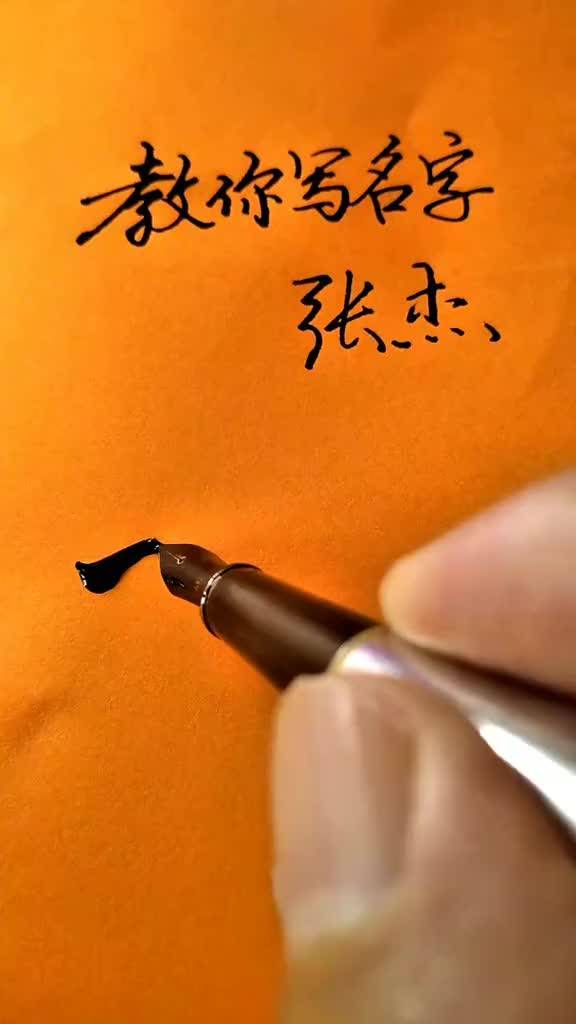 教你写名字
张杰